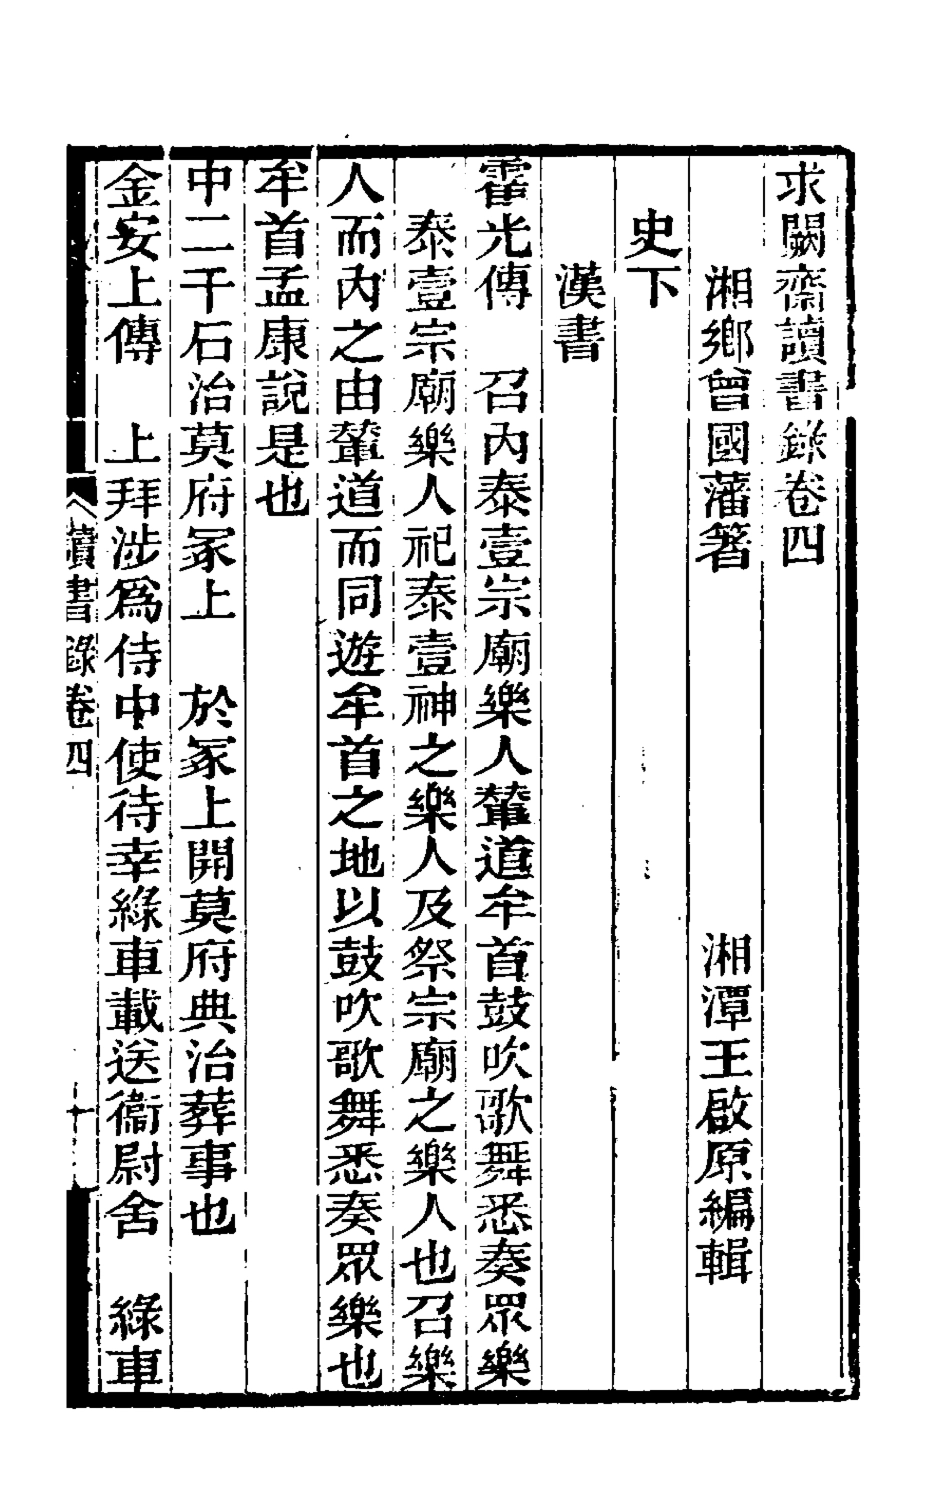 求闕齋讀書錄卷四
湘鄉曾國藩箸　湘潭王啟原編輯
史下
漢書
霍光傳　召內泰壹宗廟樂人輦道牟首鼓吹歌舞悉奏眾樂
泰壹宗廟樂人祀泰壹神之樂人及祭宗廟之樂人也召樂
人而內之由輦道而同遊牟首之地以鼓吹歌舞悉奏眾樂也
牟首孟康說是也
中二千石治莫府冢上　於冢上開莫府典治葬事也
金安上傳　上拜涉爲侍中使待幸綠車載送衞尉舍　綠車
讀書錄卷四